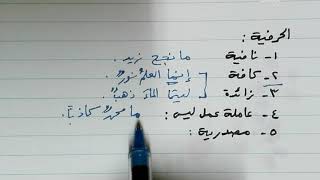 الحرفية :
١- نافية    ما نجح زيد .
٢- كافة    إنما العلمُ نورٌ .
٣- زائدة    ليتما الماءَ ذهبٌ .
٤- عاملة عمل ليس :    ما محمدٌ كاذباً .
٥- مصدرية :